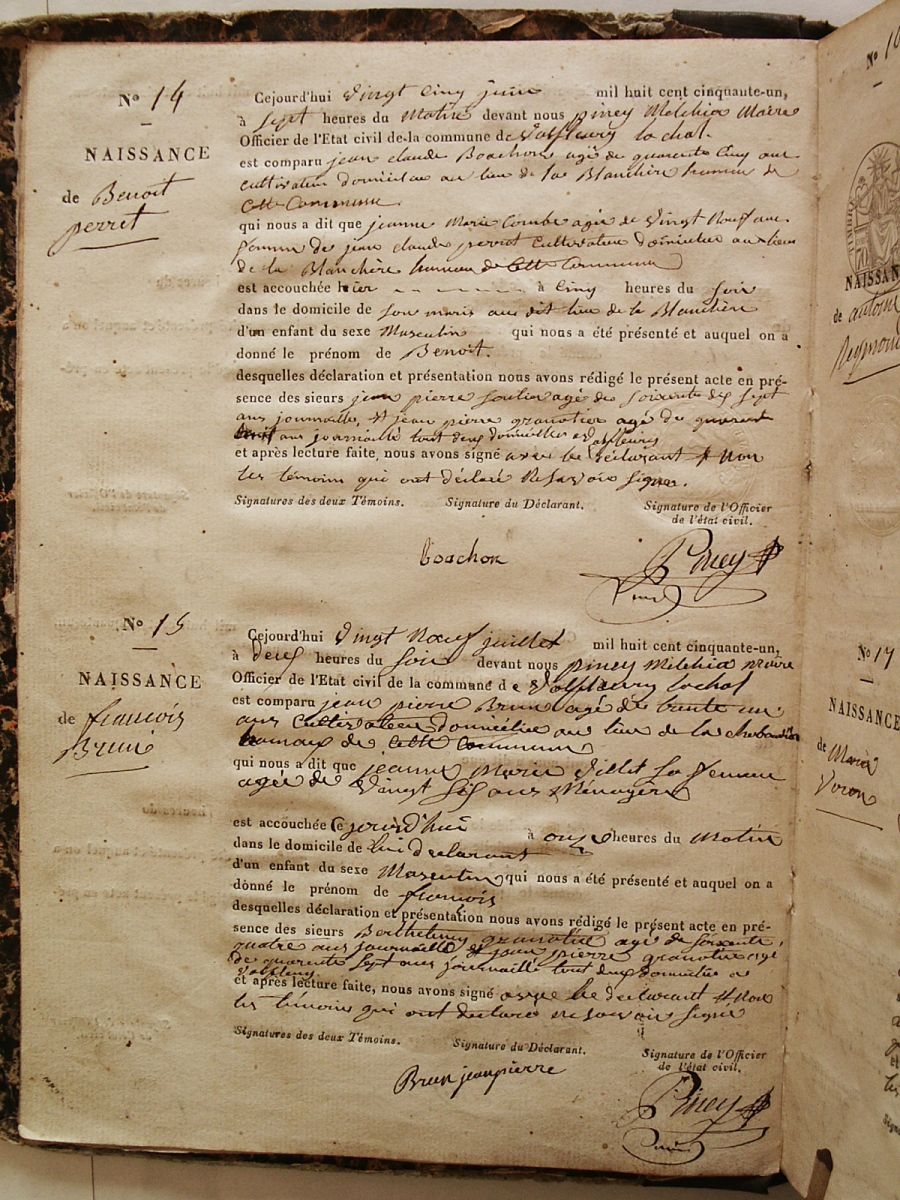 Nº 14
NAISSANCE
de Benoit
perret
Cejourd'hui Vingt Cinq juin mil huit cent cinquante-un,
à Sept heures du Matin devant nous piney Melchior Maire
Officier de l'Etat civil de la commune de Valfleury lachal.
est comparu jean claude Boachon agé de quarente Cinq ans
cultivateur domicilié au lieu de la Blanchère hameau de
Cette Commune
qui nous a dit que jeanne Marie Combe agée de Vingt Neuf ans
femme de jean claude perret Cultivateur domicilié au lieu
de la Blanchère hameau de Cette Commune
est accouchée hier à Cinq heures du Soir
dans le domicile de Son maris au dit lieu de la Blanchère
d'un enfant du sexe Masculin qui nous a été présenté et auquel on a
donné le prénom de Benoit.
desquelles déclaration et présentation nous avons rédigé le présent acte en pré-
sence des sieurs jean pierre Soulier agé de Soixente dix Sept
ans journaille, et jean pierre granotier agé de quarente
ans journaille tout deux domicilies a Valfleury
et après lecture faite, nous avons signé avec le déclarant et Non
les témoins qui ont déclaré Ne Savoir Signer.
Signatures des deux Témoins. Signature du Déclarant. Signature de l'Officier
de l'état civil.
Boachon
Piney
Nº 15
NAISSANCE
de francois
Brun
Cejourd'hui Vingt Neuf juillet mil huit cent cinquante-un,
à deux heures du Soir devant nous piney Melchior maire
Officier de l'Etat civil de la commune de Valfleury lachal
est comparu jean pierre Brun agé de trente un
ans Cultivateur domicilié au lieu de la
hamaux de Cette Commune
qui nous a dit que jeanne Marie Villet Sa femme
agée de Vingt Six ans Ménagère
est accouchée Cejourd'hui à onze heures du Matin
dans le domicile de lui déclarant
d'un enfant du sexe Masculin qui nous a été présenté et auquel on a
donné le prénom de francois
desquelles déclaration et présentation nous avons rédigé le présent acte en pré-
sence des sieurs Barthelemy granotier agé de Soixente
quatre ans journaille et jean pierre granotier agé
de quarente Sept ans journaille tout deux domicilies a
Valfleury
et après lecture faite, nous avons signé avec le déclarant et Non
les témoins qui ont déclaré ne Savoir Signé
Signatures des deux Témoins. Signature du Déclarant. Signature de l'Officier
de l'état civil.
Brun jean pierre
Piney
NAISSANCE
de antoine
Reymond
Nº 17
NAISSANCE
de Marie
Voron